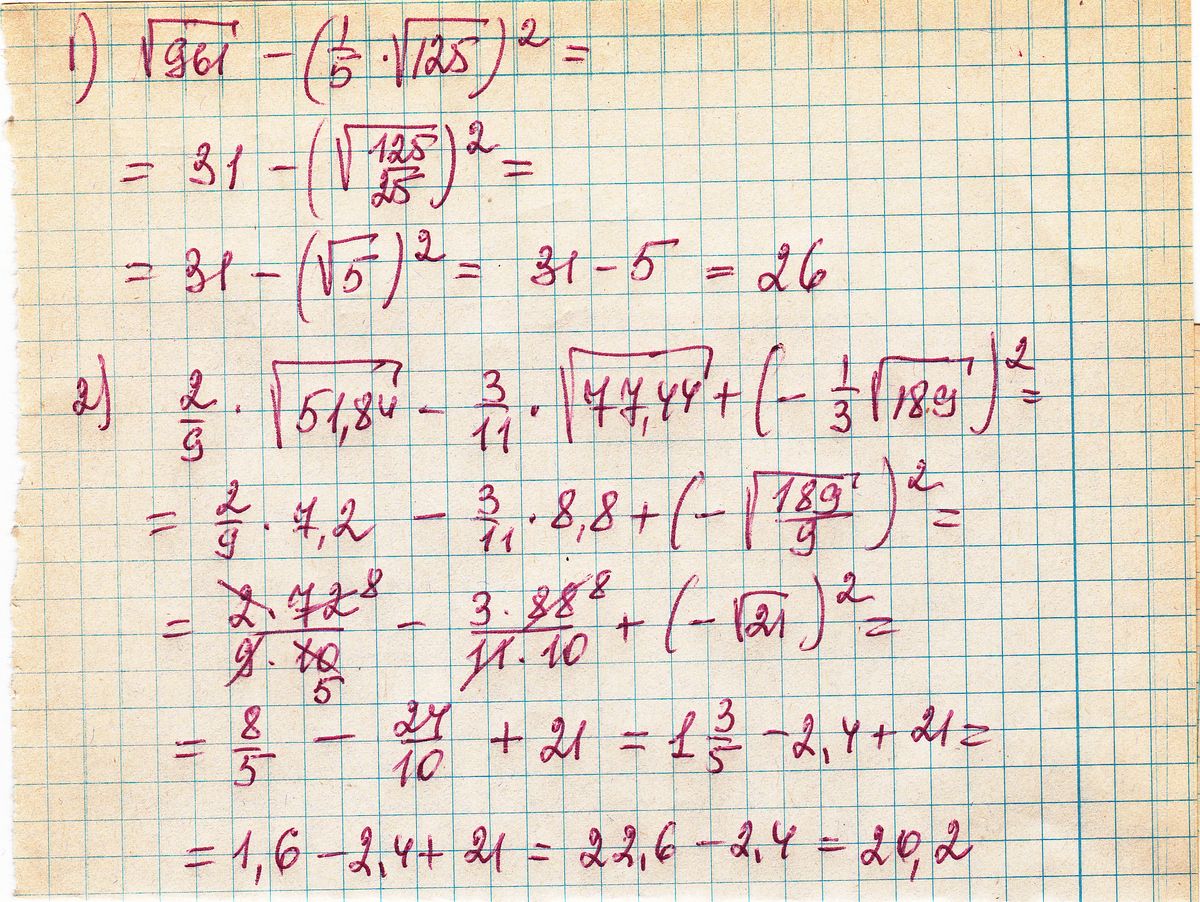 1) √961 − (1/5 · √125)² =
= 31 − (√(125/25))² =
= 31 − (√5)² = 31 − 5 = 26
2) 2/9 · √51,84 − 3/11 · √77,44 + (− 1/3 √189)² =
= 2/9 · 7,2 − 3/11 · 8,8 + (− √(189/9))² =
= (2 · 72 8)/(9 · 10 5) − (3 · 88 8)/(11 · 10) + (− √21)² =
= 8/5 − 24/10 + 21 = 1 3/5 − 2,4 + 21 =
= 1,6 − 2,4 + 21 = 22,6 − 2,4 = 20,2